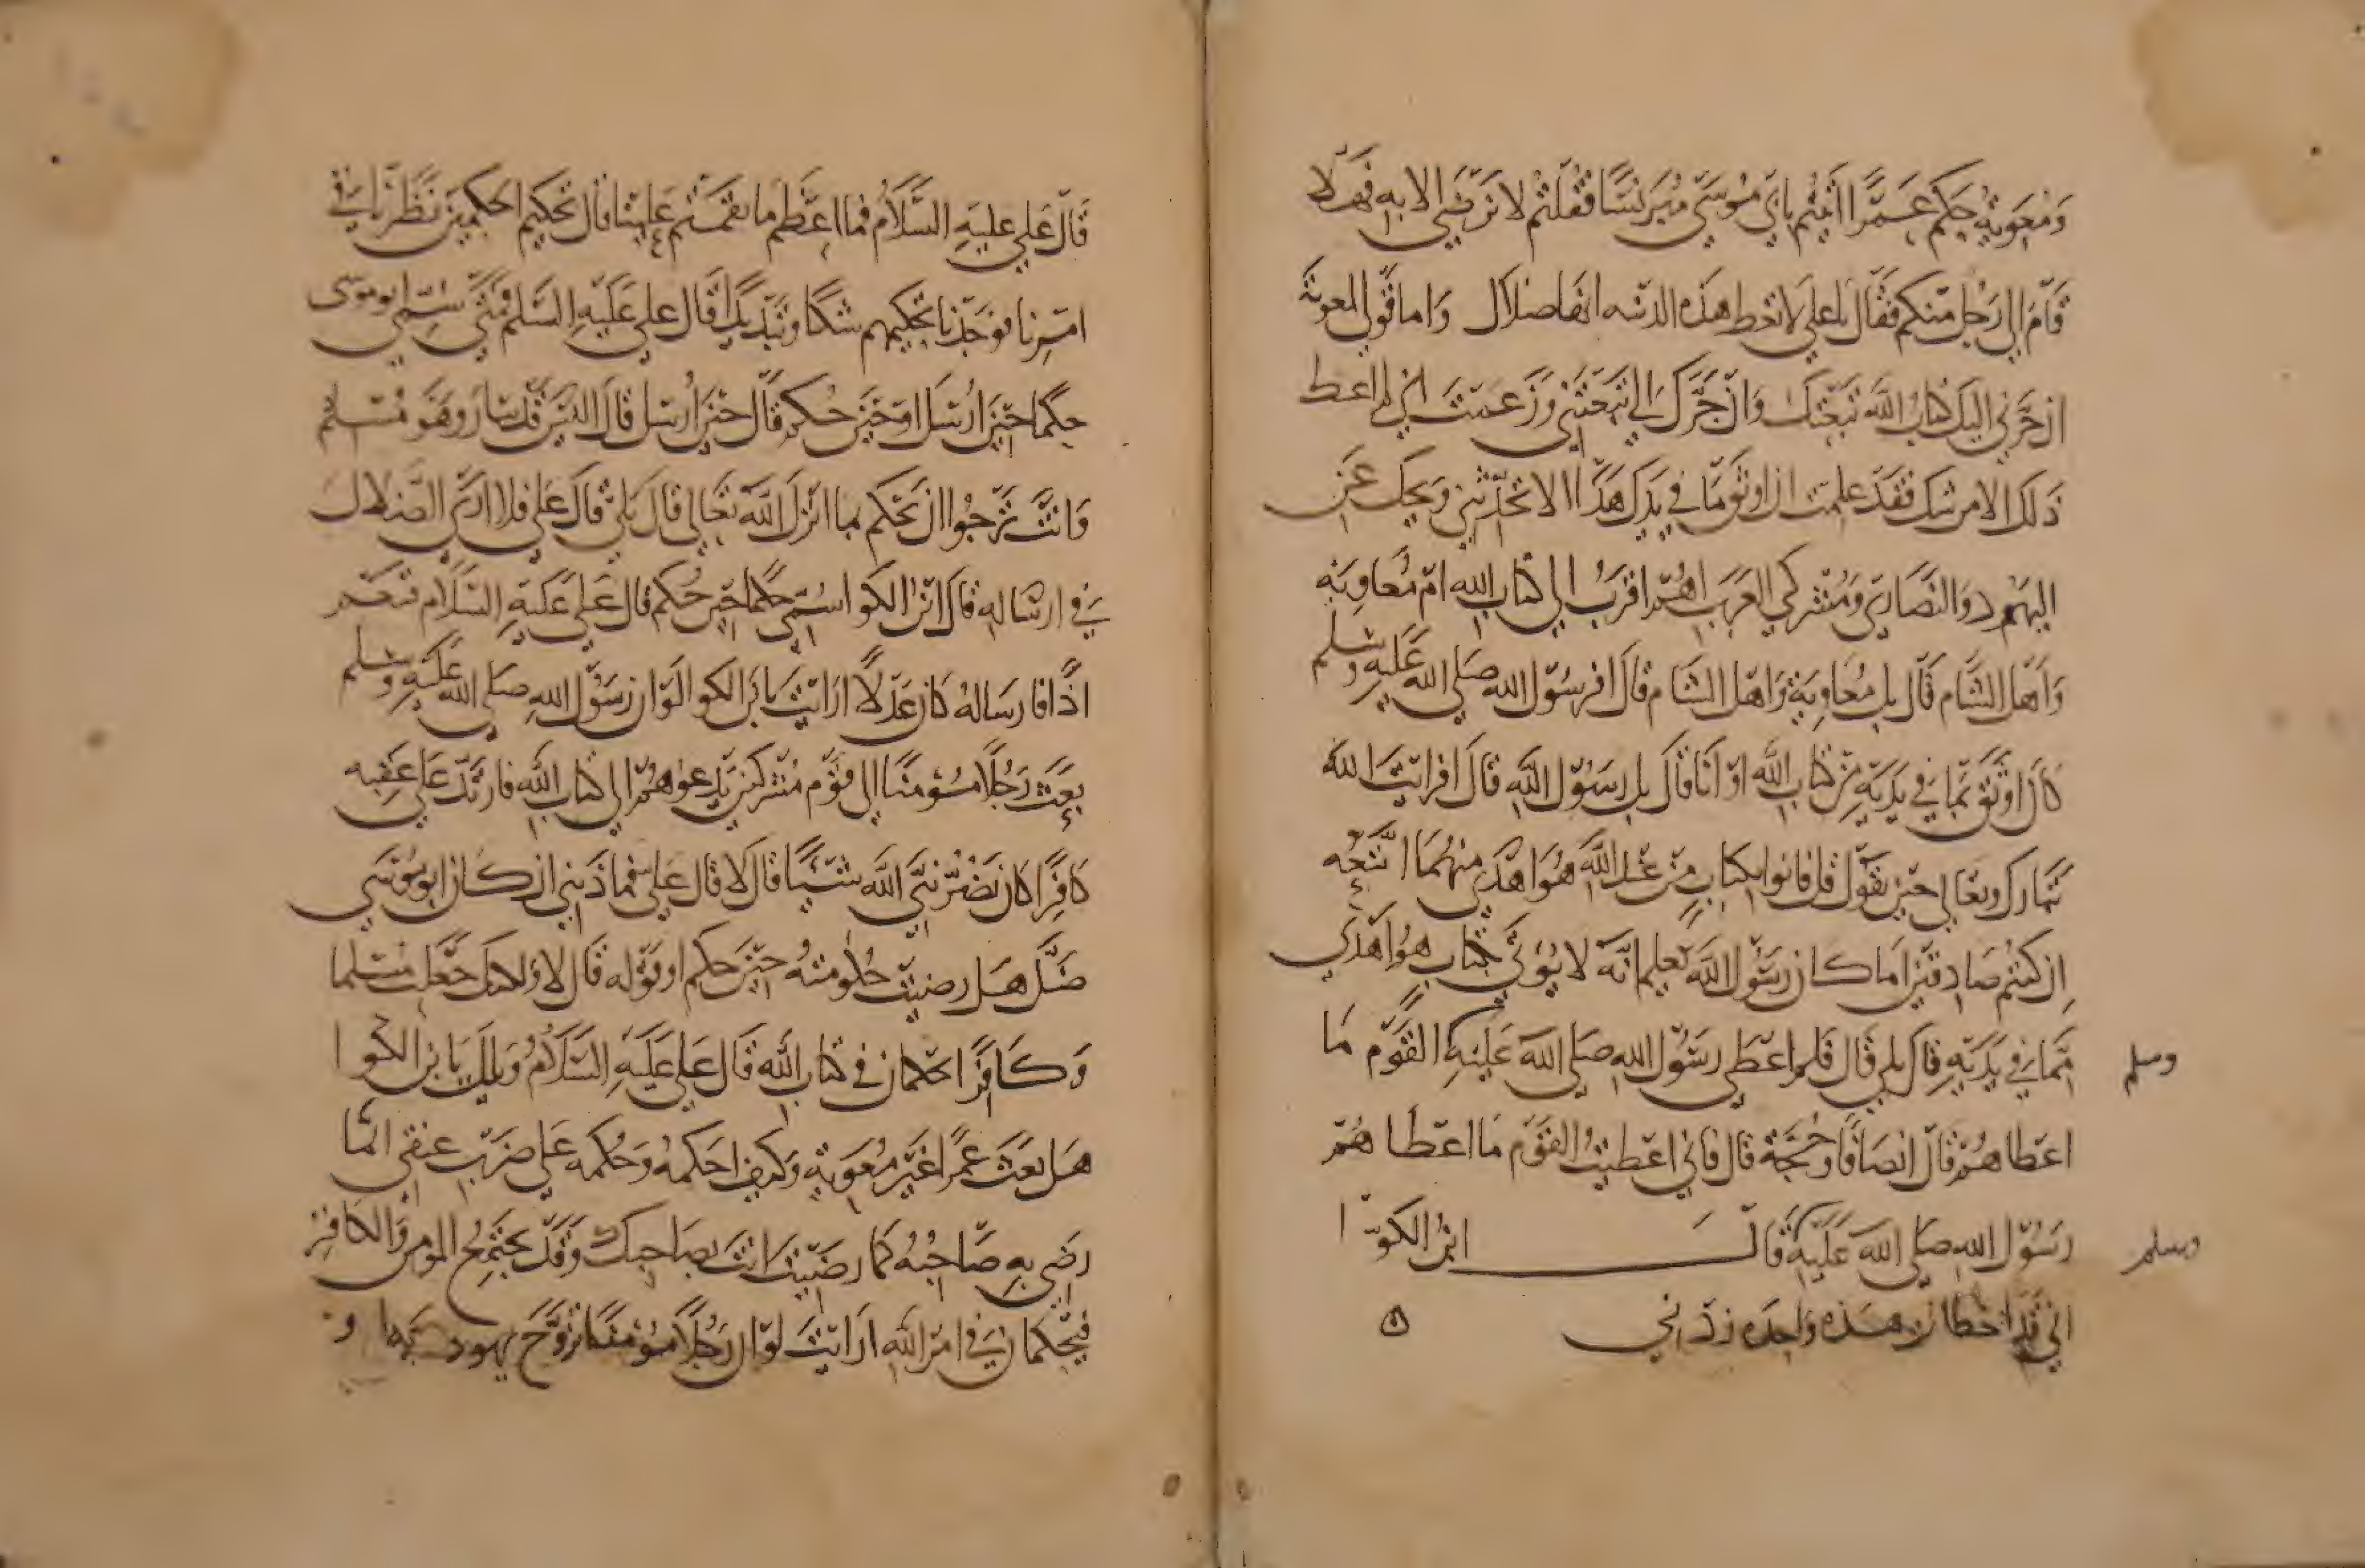 ومعوية حكم عمرا اتيتم بابي موسى مبرنسا فقلتم لا نرضى الا به فهلا
قام الي رجل منكم فقال يا علي لا تعط هذه الدنيه انها ضلال واما قولي لمعوية
ان جرني اليك كتاب الله تبعتك وان جرك الي تبعتني وزعمت اني لم اعط
ذلك الا من شك فقد علمت ان اوثق ما في يدك هذا الا تحدثني ويحك عن
اليهود والنصارى ومشركي العرب اهم اقرب الى كتاب الله ام معاوية
واهل الشام قال بل معاوية واهل الشام قال افرسول الله صلى الله عليه وسلم
كان اوثق بما في يديه من كتاب الله او انا قال بل رسول الله قال افرايت الله
تبارك وتعالى حين يقول قل فاتوا بكتاب من عند الله هو اهدى منهما اتبعه
ان كنتم صادقين اما كان رسول الله يعلم انه لا يؤتى بكتاب هو اهدى
مما في يديه قال بلى قال فلم اعطى رسول الله صلى الله عليه القوم ما
وسلم
اعطاهم قال انصافا وحجة قال فاني اعطيت القوم ما اعطاهم
رسول الله صلى الله عليه قال ابن الكوا
وسلم
اني قد اخطات هذه واحدة زدني
قال علي عليه السلام فما اعظم ما نقمتم علينا قال تحكيم الحكمين نظرنا في
امرنا فوجدنا تحكيمهم شكا وتبذيرا قال علي عليه السلم فمتى سمي ابو موسى
حكما حين ارسل او حين حكم قال حين ارسل قال اليس قد سار وهو مسلم
وانت ترجوا ان يحكم بما انزل الله تعالى قال بلى قال علي فلا ارى الضلال
في ارساله قال ابن الكوا سمي حكما حين حكم قال علي عليه السلام فنعم
اذا فارساله كان عدلا ارايت يا بن الكوا لو ان رسول الله صلى الله عليه وسلم
بعث رجلا مؤمنا الى قوم مشركين يدعوهم الى كتاب الله فارتد على عقبه
كافرا كان يضر نبي الله شيئا قال لا قال علي فما ذنبي ان كان ابو موسى
ضل هل رضيت حكومته حين حكم او قوله قال لا ولكنك جعلت مسلما
وكافرا يحكمان في كتاب الله قال علي عليه السلام ويلك يا بن الكوا
هل بعث عمرا غير معوية وكيف احكمه وحكمه على ضرب عنقي انما
رضي به صاحبه كما رضيت انت بصاحبك وقد يجتمع المومن والكافر
فيحكمان في امر الله ارايت لو ان رجلا مؤمنا تزوج يهودية